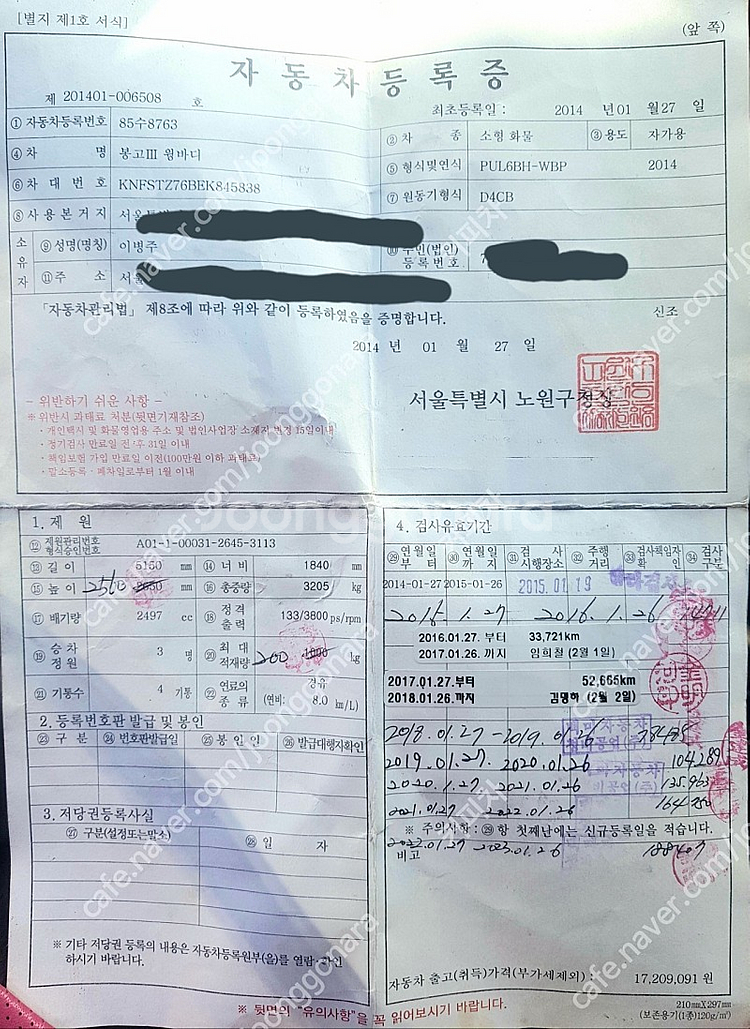 [별지 제1호 서식]
(앞 쪽)
자동차등록증
제 201401-006508 호
최초등록일 : 2014 년 01 월 27 일
① 자동차등록번호 85수8763 ② 차 종 소형 화물 ③ 용도 자가용
④ 차 명 봉고III 윙바디 ⑤ 형식및연식 PUL6BH-WBP 2014
⑥ 차 대 번 호 KNFSTZ76BEK845838 ⑦ 원동기형식 D4CB
⑧ 사 용 본 거 지 서울
소유자 ⑨ 성명(명칭) 이병주 ⑩ 주민(법인)등록번호
⑪ 주 소 서울
「자동차관리법」 제8조에 따라 위와 같이 등록하였음을 증명합니다. 신조
2014 년 01 월 27 일
서울특별시 노원구청장
- 위반하기 쉬운 사항 -
※ 위반시 과태료 처분(뒷면기재참조)
· 개인택시 및 화물영업용 주소 및 법인사업장 소재지 변경 15일이내
· 정기검사 만료일 전·후 31일 이내
· 책임보험 가입 만료일 이전(100만원 이하 과태료)
· 말소등록 - 폐차일로부터 1월 이내
1. 제 원
⑫ 제원관리번호 형식승인번호 A01-1-00031-2645-3113
⑬ 길 이 5150 mm ⑭ 너 비 1840 mm
⑮ 높 이 2560 mm ⑯ 총중량 3205 kg
⑰ 배기량 2497 cc ⑱ 정격출력 133/3800 ps/rpm
⑲ 승차정원 3 명 ⑳ 최대적재량 200 kg
㉑ 기통수 4 기통 ㉒ 연료의 종류 경유 (연비: 8.0 km/L)
2. 등록번호판 발급 및 봉인
㉓ 구 분 ㉔ 번호판발급일 ㉕ 봉 인 인 ㉖ 발급대행자확인
3. 저당권등록사실
㉗ 구분(설정또는말소) ㉘ 일 자
※ 기타 저당권 등록의 내용은 자동차등록원부(을)를 열람·확인
하시기 바랍니다.
4. 검사유효기간
㉙ 연월일부터 ㉚ 연월일까지 ㉛ 검사시행장소 ㉜ 주행거리 ㉝ 검사책임자확인 ㉞ 검사구분
2014-01-27 2015-01-26 2015.01.19
2015. 1. 27 2016. 1. 26
2016.01.27. 부터 33,721km
2017.01.26. 까지 임희철 (2월 1일)
2017.01.27.부터 52,665km
2018.01.26.까지 김명하 (2월 2일)
2018.01.27 - 2019.01.26
2019.01.27. 2020.01.26 104289
2020.1.27 2021.01.26
2021.01.27 2022.01.26
※ 주의사항 : ㉙ 항 첫째난에는 신규등록일을 적습니다.
비고 2022.01.27 2023.01.26
자동차 출고(취득)가격(부가세제외) : 17,209,091 원
210mm×297mm
(보존용지(1종)120g/㎡)
※ 뒷면의 "유의사항"을 꼭 읽어보시기 바랍니다.
Joonggonara
cafe.naver.com/joonggonara